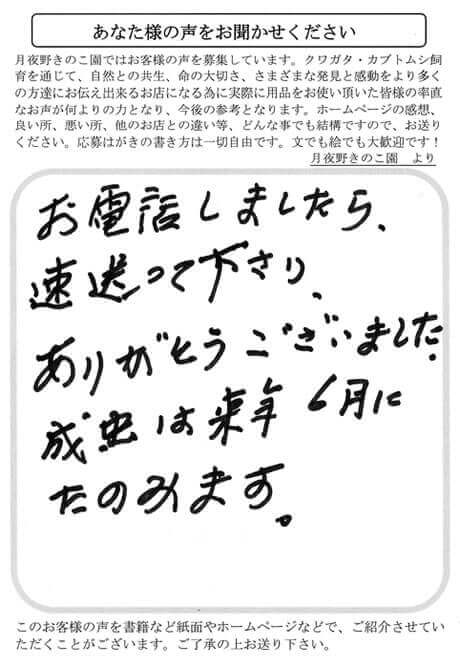 あなた様の声をお聞かせください
月夜野きのこ園ではお客様の声を募集しています。クワガタ・カブトムシ飼
育を通じて、自然との共生、命の大切さ、さまざまな発見と感動をより多く
の方達にお伝え出来るお店になる為に実際に用品をお使い頂いた皆様の率直
なお声が何よりの力となり、今後の参考となります。ホームページの感想、
良い所、悪い所、他のお店との違い等、どんな事でも結構ですので、お送り
ください。応募はがきの書き方は一切自由です。文でも絵でも大歓迎です！
月夜野きのこ園　より
お電話しましたら、
速送って下さり、
ありがとうございました。
成虫は来年 6月に
たのみます。
このお客様の声を書籍など紙面やホームページなどで、ご紹介させてい
ただくことがございます。ご了承の上お送り下さい。